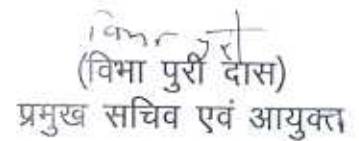 (विभा पुरी दास)
प्रमुख सचिव एवं आयुक्त